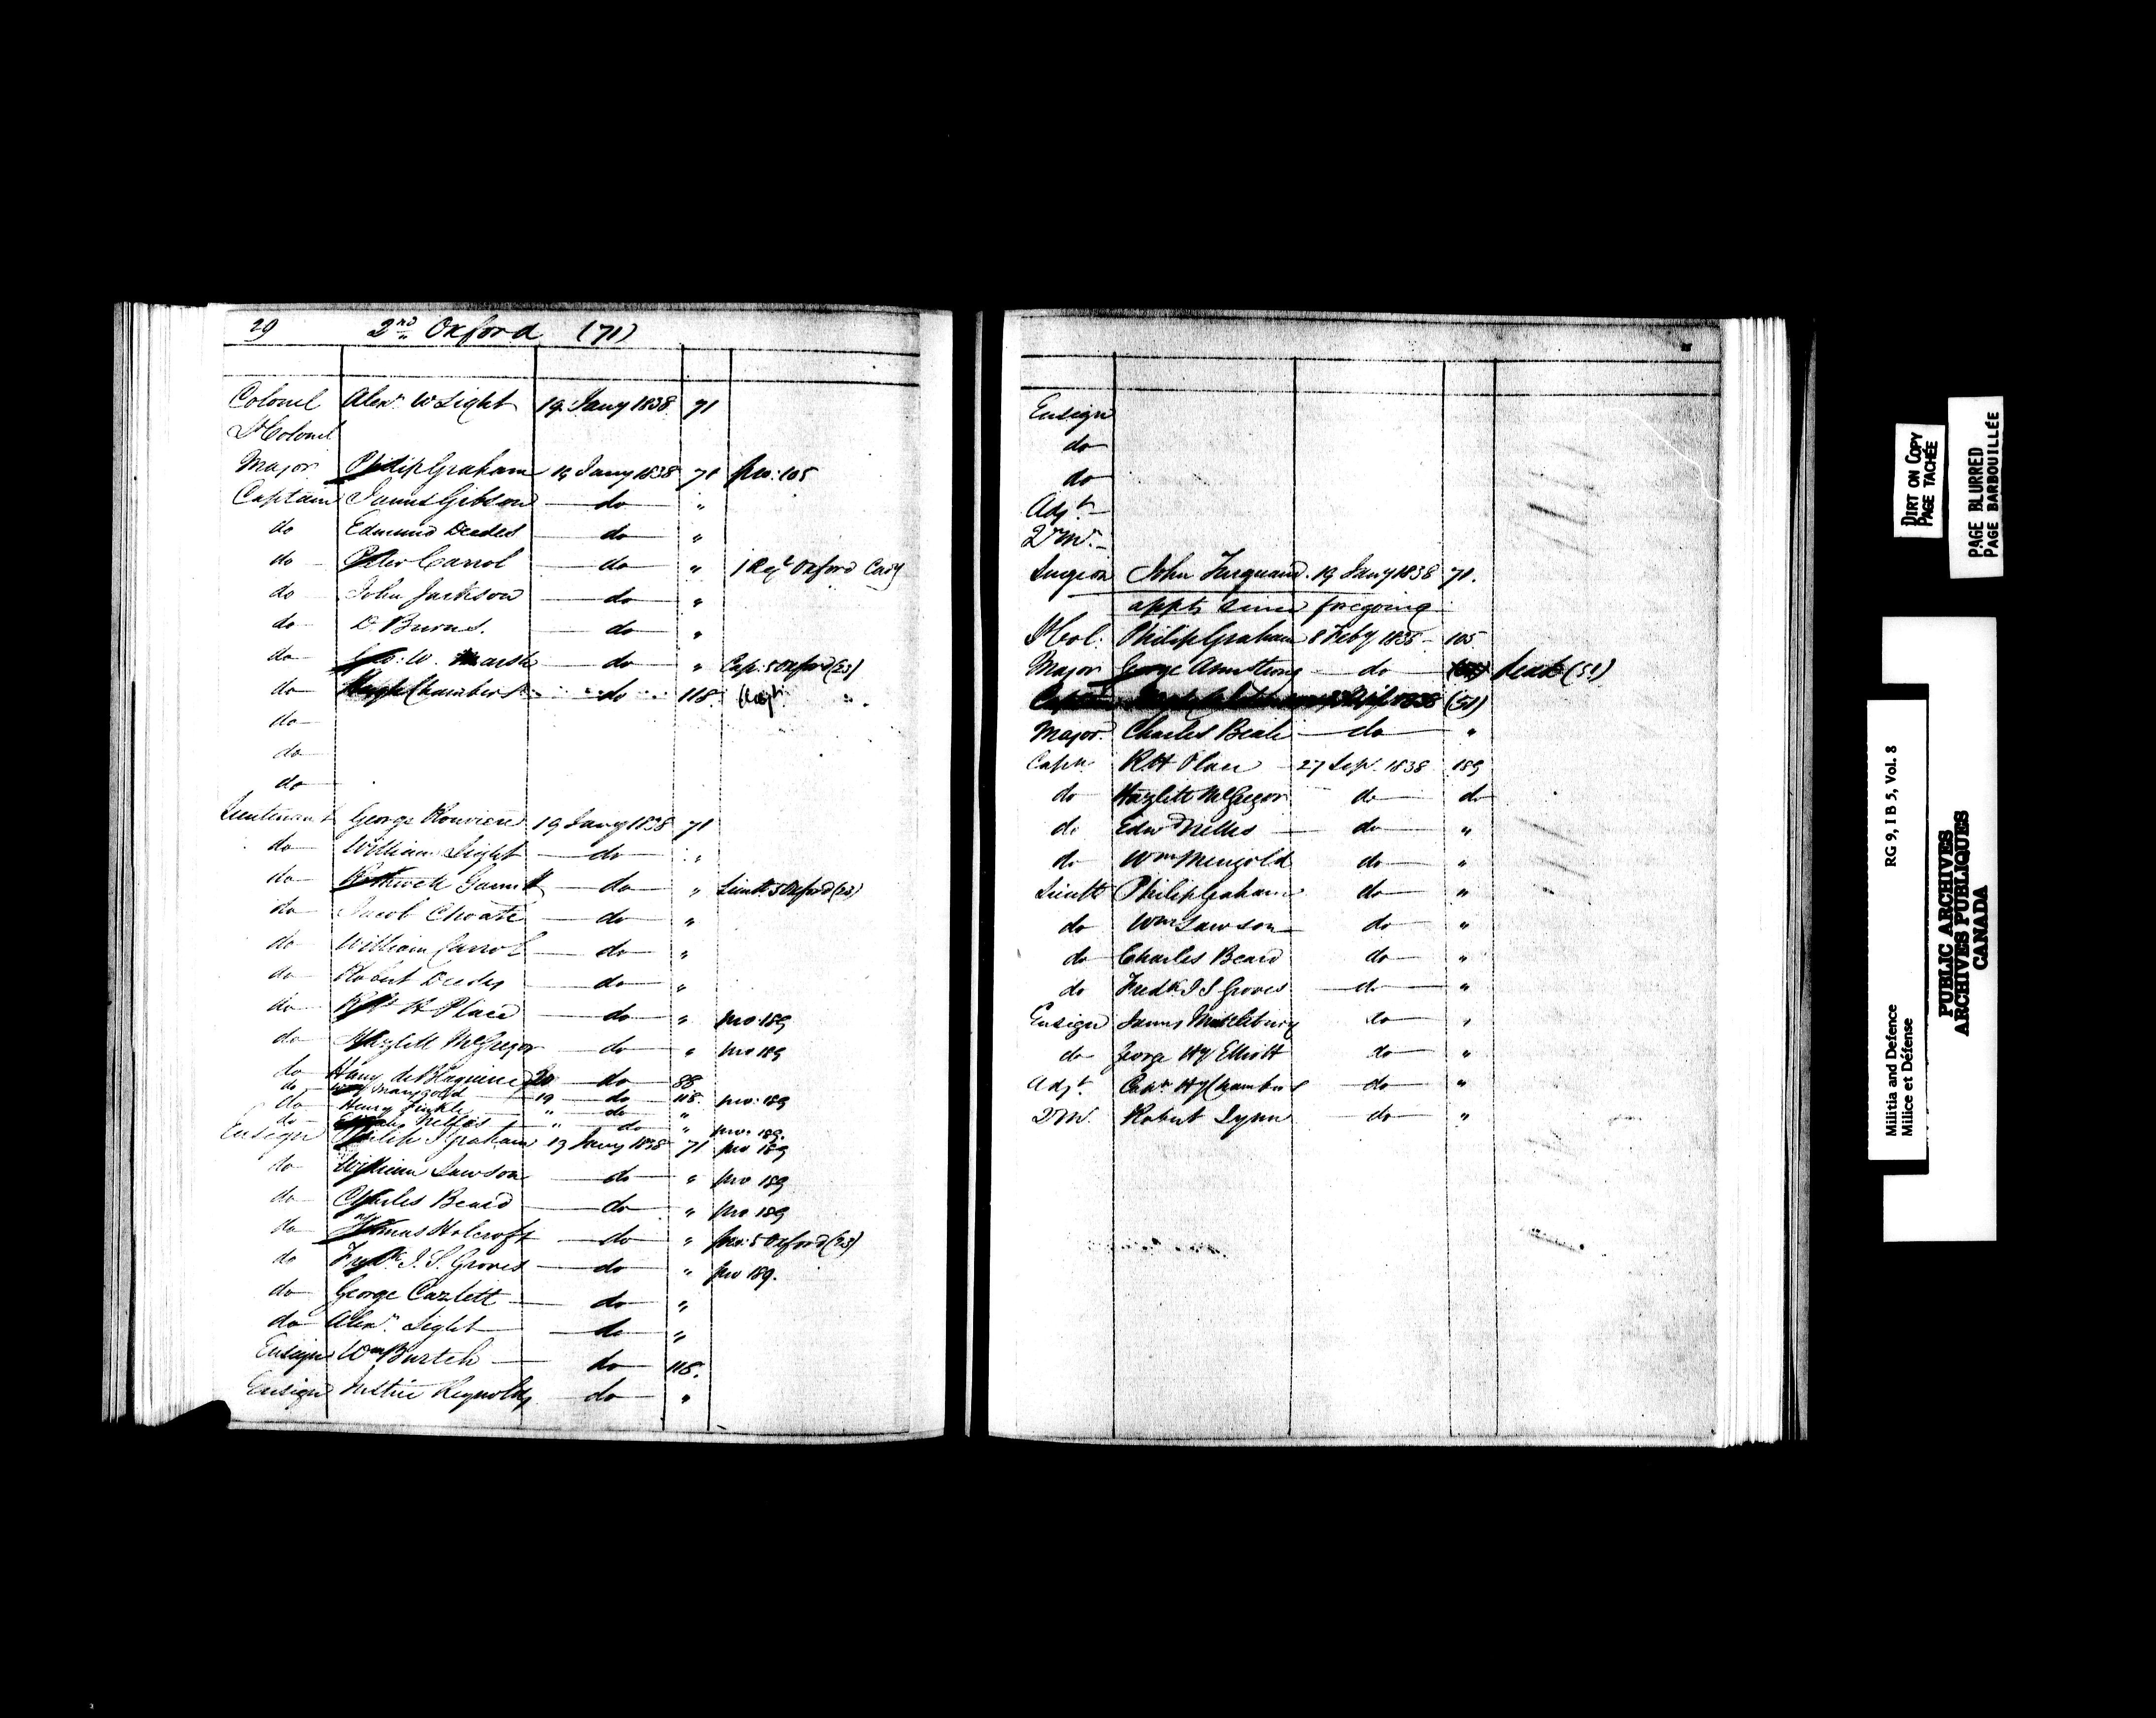 29 2nd Oxford (71)
Colonel Alexr W Light 19 Jany 1838 71
Lt Colonel
Major Philip Graham 19 Jany 1838 71 pro: 105
Captain James Gibson do "
do Edmund Deedes do "
do Peter Carrol do " 1 Regt Oxford Cavy
do John Jackson do "
do D. Burns. do "
do Geo: W. Marsh do " Cap: 5 Oxford (23)
do Hugh Chambers do 118.
do
do
do
Lieutenant George Rouviere 19 Jany 1838 71
do William Light do "
do do " Lieutt 5 Oxford (23)
do Jacob Choate do "
do William Carrol do "
do Robert Deedes do "
do Robt H Place do " pro 189
do Hazlitt McGregor do " pro 189
do Henry de Blaquiere 20 do 88
do Wm Mangold 19 do 118. pro: 189
do Henry Finkle " do "
do Nelles " do " pro: 189.
Ensign Philip Graham 19 Jany 1838 71 pro 189
do William Lawson do " pro 189
do Charles Beard do " pro 189
do Thomas Holcroft do " pro: 5 Oxford (23)
do Fredk J. S. Groves do " pro 189.
do George Cazlett do "
do Alexr Light do "
Ensign Wm Burtch do 118.
Ensign Justice Reynolds do "
Ensign
do
do
Adjt
Qr Mr
Surgeon John Turquand. 19 Jany 1838 71.
appts since foregoing
Lt Col. Philip Graham 8 Feby 1838 105
Major George Armstrong do dead (51)
1838 (51)
Major Charles Beale do "
Captn R H Place 27 Sep. 1838 189
do Hazlitt McGregor do do
do Edwd Nelles do "
do Wm Mengold do "
Lieutt Philip Graham do "
do Wm Lawson do "
do Charles Beard do "
do Fredk J S Groves do "
Ensign James do "
do George Hy Elliott do "
Adjt. Captn Hy Chambers do "
Q M. Robert Lynn do "
DIRT ON COPY
PAGE TACHÉE
PAGE BLURRED
PAGE BARBOUILLÉE
Militia and Defence RG 9, I B 5, Vol. 8
Milice et Défense
PUBLIC ARCHIVES
ARCHIVES PUBLIQUES
CANADA